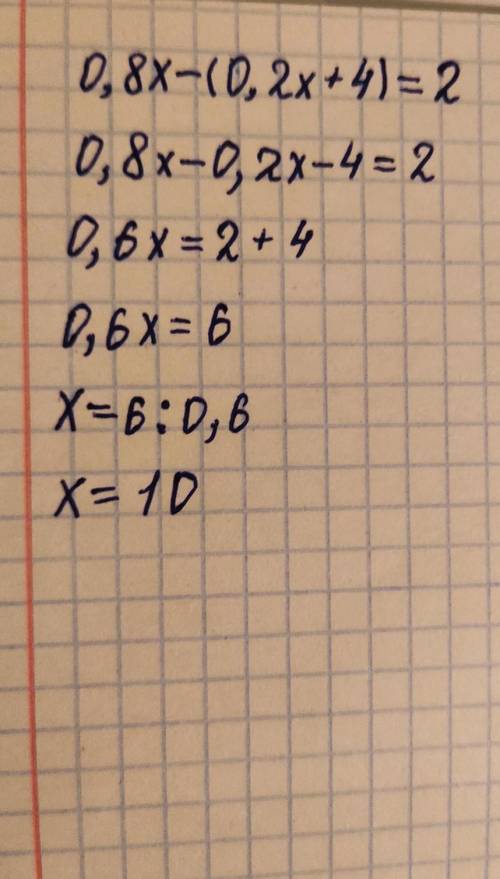 0,8x-(0,2x+4)=2
0,8x-0,2x-4=2
0,6x=2+4
0,6x=6
x=6:0,6
x=10